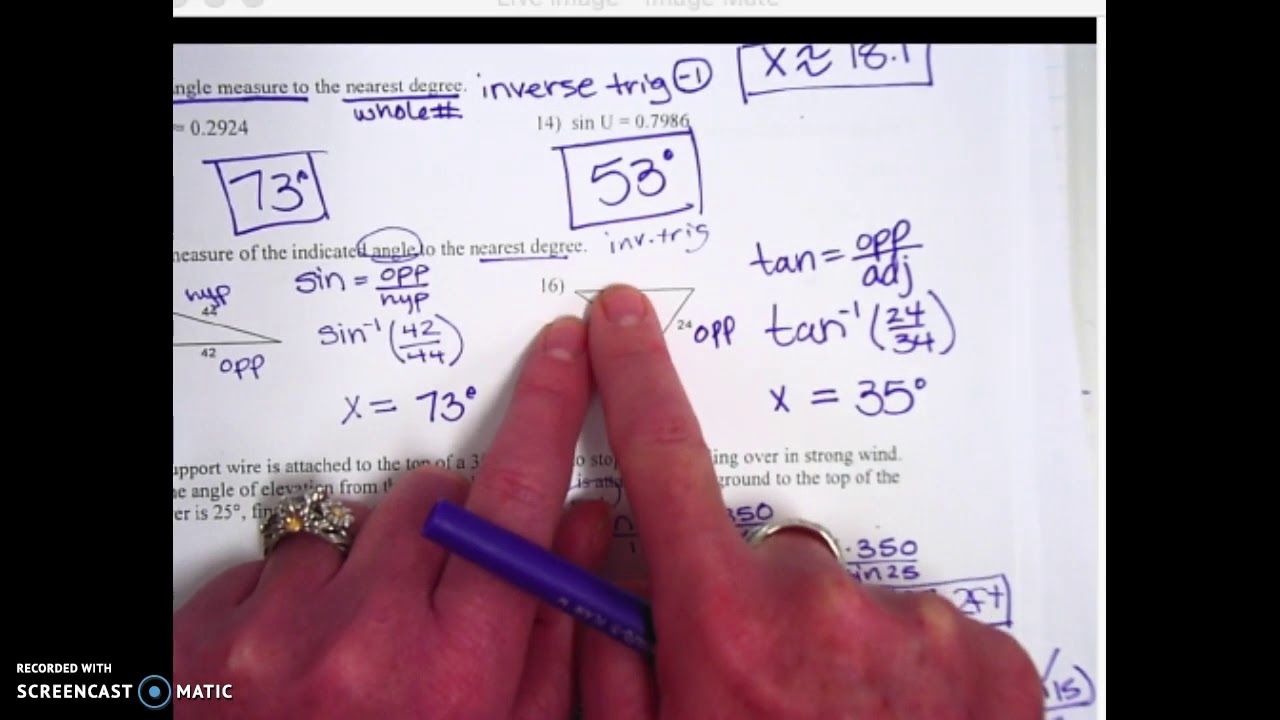 x ≈ 18.1
ngle measure to the nearest degree. inverse trig -1
whole#
= 0.2924
14) sin U = 0.7986
73°
53°
measure of the indicated angle to the nearest degree. inv. trig
hyp
44
42
opp
sin = opp/hyp
sin⁻¹(42/44)
x = 73°
16)
24 opp
tan = opp/adj
tan⁻¹(24/34)
x = 35°
upport wire is attached to the top of a 3
ing over in strong wind.
e angle of elevation from
ground to the top of the
er is 25°,
350
·350
in 25
2ft
15)
RECORDED WITH
SCREENCAST MATIC